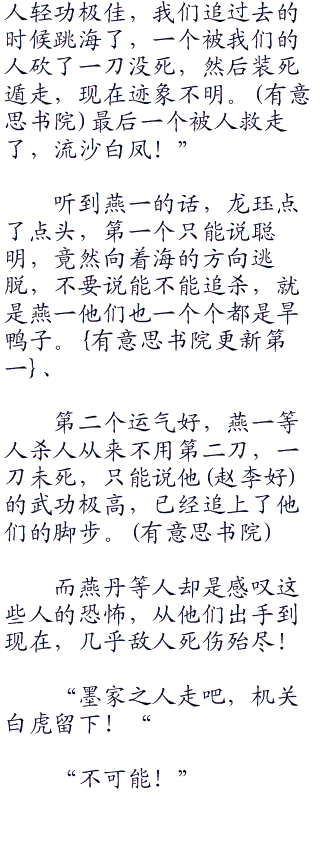 人轻功极佳，我们追过去的
时候跳海了，一个被我们的
人砍了一刀没死，然后装死
遁走，现在迹象不明。(有意
思书院)最后一个被人救走
了，流沙白凤！”
听到燕一的话，龙珏点
了点头，第一个只能说聪
明，竟然向着海的方向逃
脱，不要说能不能追杀，就
是燕一他们也一个个都是旱
鸭子。{有意思书院更新第
一}、
第二个运气好，燕一等
人杀人从来不用第二刀，一
刀未死，只能说他(赵李好)
的武功极高，已经追上了他
们的脚步。(有意思书院)
而燕丹等人却是感叹这
些人的恐怖，从他们出手到
现在，几乎敌人死伤殆尽！
“墨家之人走吧，机关
白虎留下！“
“不可能！”